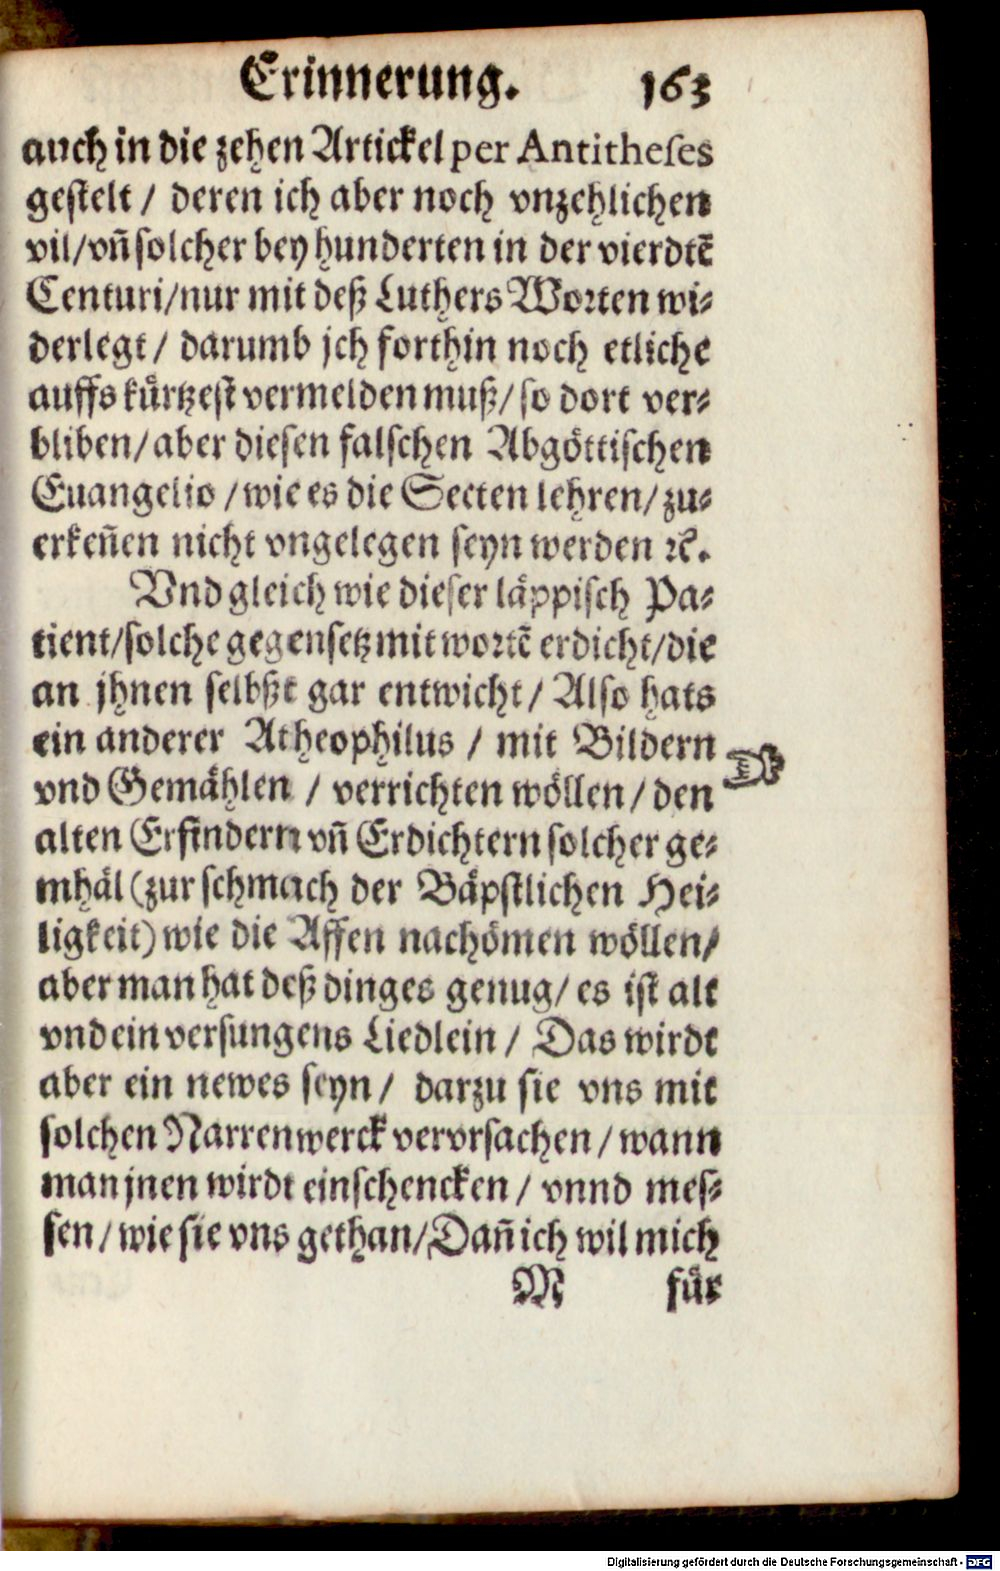 Erinnerung. 163
auch in die zehen Artickel per Antitheses
gestelt / deren ich aber noch vnzehlichen
vil/vñ solcher bey hunderten in der vierdtẽ
Centuri/nur mit deß Luthers Worten wi-
derlegt / darumb jch forthin noch etliche
auffs kürtzest vermelden muß/ so dort ver-
bliben/aber diesen falschen Abgöttischen
Euangelio /wie es die Secten lehren/ zu-
erkeñen nicht vngelegen seyn werden ꝛc.
Vnd gleich wie dieser läppisch Pa-
tient/solche gegensetz mit wortẽ erdicht/die
an jhnen selbßt gar entwicht/ Also hats
ein anderer Atheophilus / mit Bildern
vnd Gemählen / verrichten wöllen/ den
alten Erfindern vñ Erdichtern solcher ge-
mhäl (zur schmach der Bäpstlichen Hei-
ligkeit) wie die Affen nachömen wöllen/
aber man hat deß dinges genug/ es ist alt
vnd ein versungens Liedlein / Das wirdt
aber ein newes seyn/ darzu sie vns mit
solchen Narrenwerck vervrsachen/ wann
man jnen wirdt einschencken/ vnnd mes-
sen/wie sie vns gethan/Dañ ich wil mich
M für
Digitalisierung gefördert durch die Deutsche Forschungsgemeinschaft - DFG